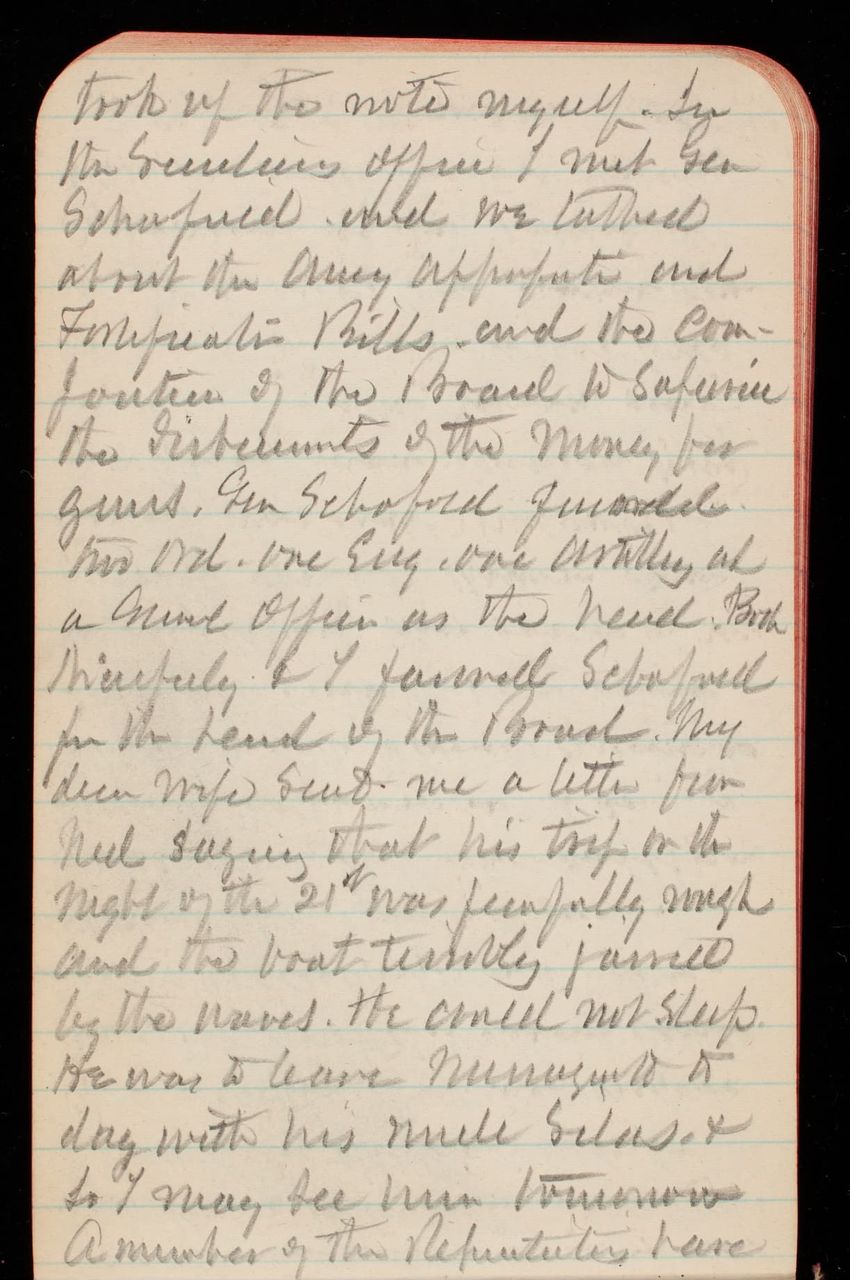 took up the note myself. In
the Secretary's office I met Gen
Schofield. and we talked
about the Army Appropriati and
Fortificatio Bills. and the Com-
position of the Board to
the disbursements of the Money for
guns. Gen Schofield favored
two Ord. one Eng. one Artillery and
a General Officer as the head. Both
& I favored Schofield
for the head of the Board. My
dear Wife sent me a letter from
Ned saying that his trip on the
night of the 21st was fearfully rough
and the boat terribly jarred
by the waves. He could not sleep.
He was to leave to
day with his uncle Silas. &
So I may see him tomorrow
A number of the have